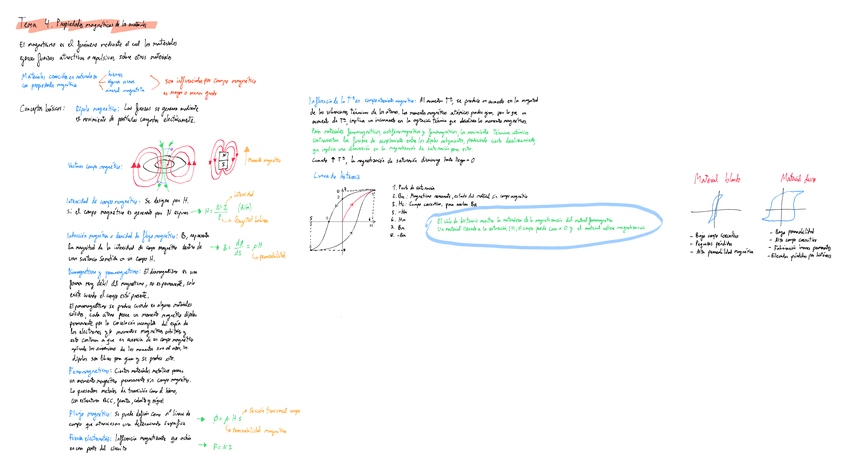 Tema 4. Propiedades magnéticas de los materiales
El magnetismo es el fenómeno mediante el cual los materiales
ejercen fuerzas atractivas o repulsivas sobre otros materiales
Materiales conocidos en naturaleza
con propiedades magnéticas
hierro
algunos aceros
mineral magnetita
son influenciados por campo magnético
en mayor o menor grado
Conceptos básicos:
Dipolo magnético: Las fuerzas se generan mediante
el movimiento de partículas cargadas eléctricamente.
Vectores campo magnético:
Momento magnético
Intensidad de campo magnético: Se designa por H.
Si el campo magnético es generado por N espiras
H = N·I (A/m)
intensidad
longitud
Inducción magnética o densidad de flujo magnético: B, representa
la magnitud de la intensidad de campo magnético dentro de
una sustancia sometida a un campo H.
B = dφ/dS = μH
permeabilidad
Diamagnetismo y paramagnetismo: El diamagnetismo es una
forma muy débil del magnetismo, no es permanente, solo
existe cuando el campo está presente.
El paramagnetismo se produce cuando en algunos materiales
sólidos, cada átomo posee un momento magnético dipolar
permanente por la cancelación incompleta del espín de
los electrones y/o momentos magnéticos orbitales y
Ferromagnetismo: Ciertos materiales metálicos poseen
un momento magnético permanente sin campo magnético.
Flujo magnético: Se puede definir como nº líneas de
campo que atraviesan una determinada superficie
φ = μ H S
Sección transversal
permeabilidad magnética
Influencia magnetizante que actúa
en una parte del circuito
F = N I
Influencia de la Tª en comportamiento magnético: Al aumentar Tª, se produce un aumento en la magnitud
de las vibraciones térmicas de los átomos. Los momentos magnéticos atómicos
aumento de Tª, implica un incremento en la agitación térmica que desalinea los momentos magnéticos.
Para materiales ferromagnéticos, antiferromagnéticos y ferrimagnéticos, los movimientos térmicos atómicos
contrarrestan las fuerzas de acoplamiento entre los dipolos adyacentes, produciendo cierto desalineamiento
Cuando ↑ Tª, la magnetización de saturación disminuye hasta llegar a 0
1. Punto de saturación
2. Br: Magnetismo remanente, estado del material sin campo magnético
3. Hc: Campo coercitivo, para anular Br
4. -Hm
5. Hm
7. Bm
8. -Bm
El ciclo de histéresis muestra la naturaleza de la magnetización del material ferromagnético.
Material blando
- Bajo campo coercitivo
- Pequeñas pérdidas
- Alta permeabilidad magnética
Material duro
- Baja permeabilidad
- Alto campo coercitivo
- Fabricación imanes permanentes
- Elevadas pérdidas por histéresis